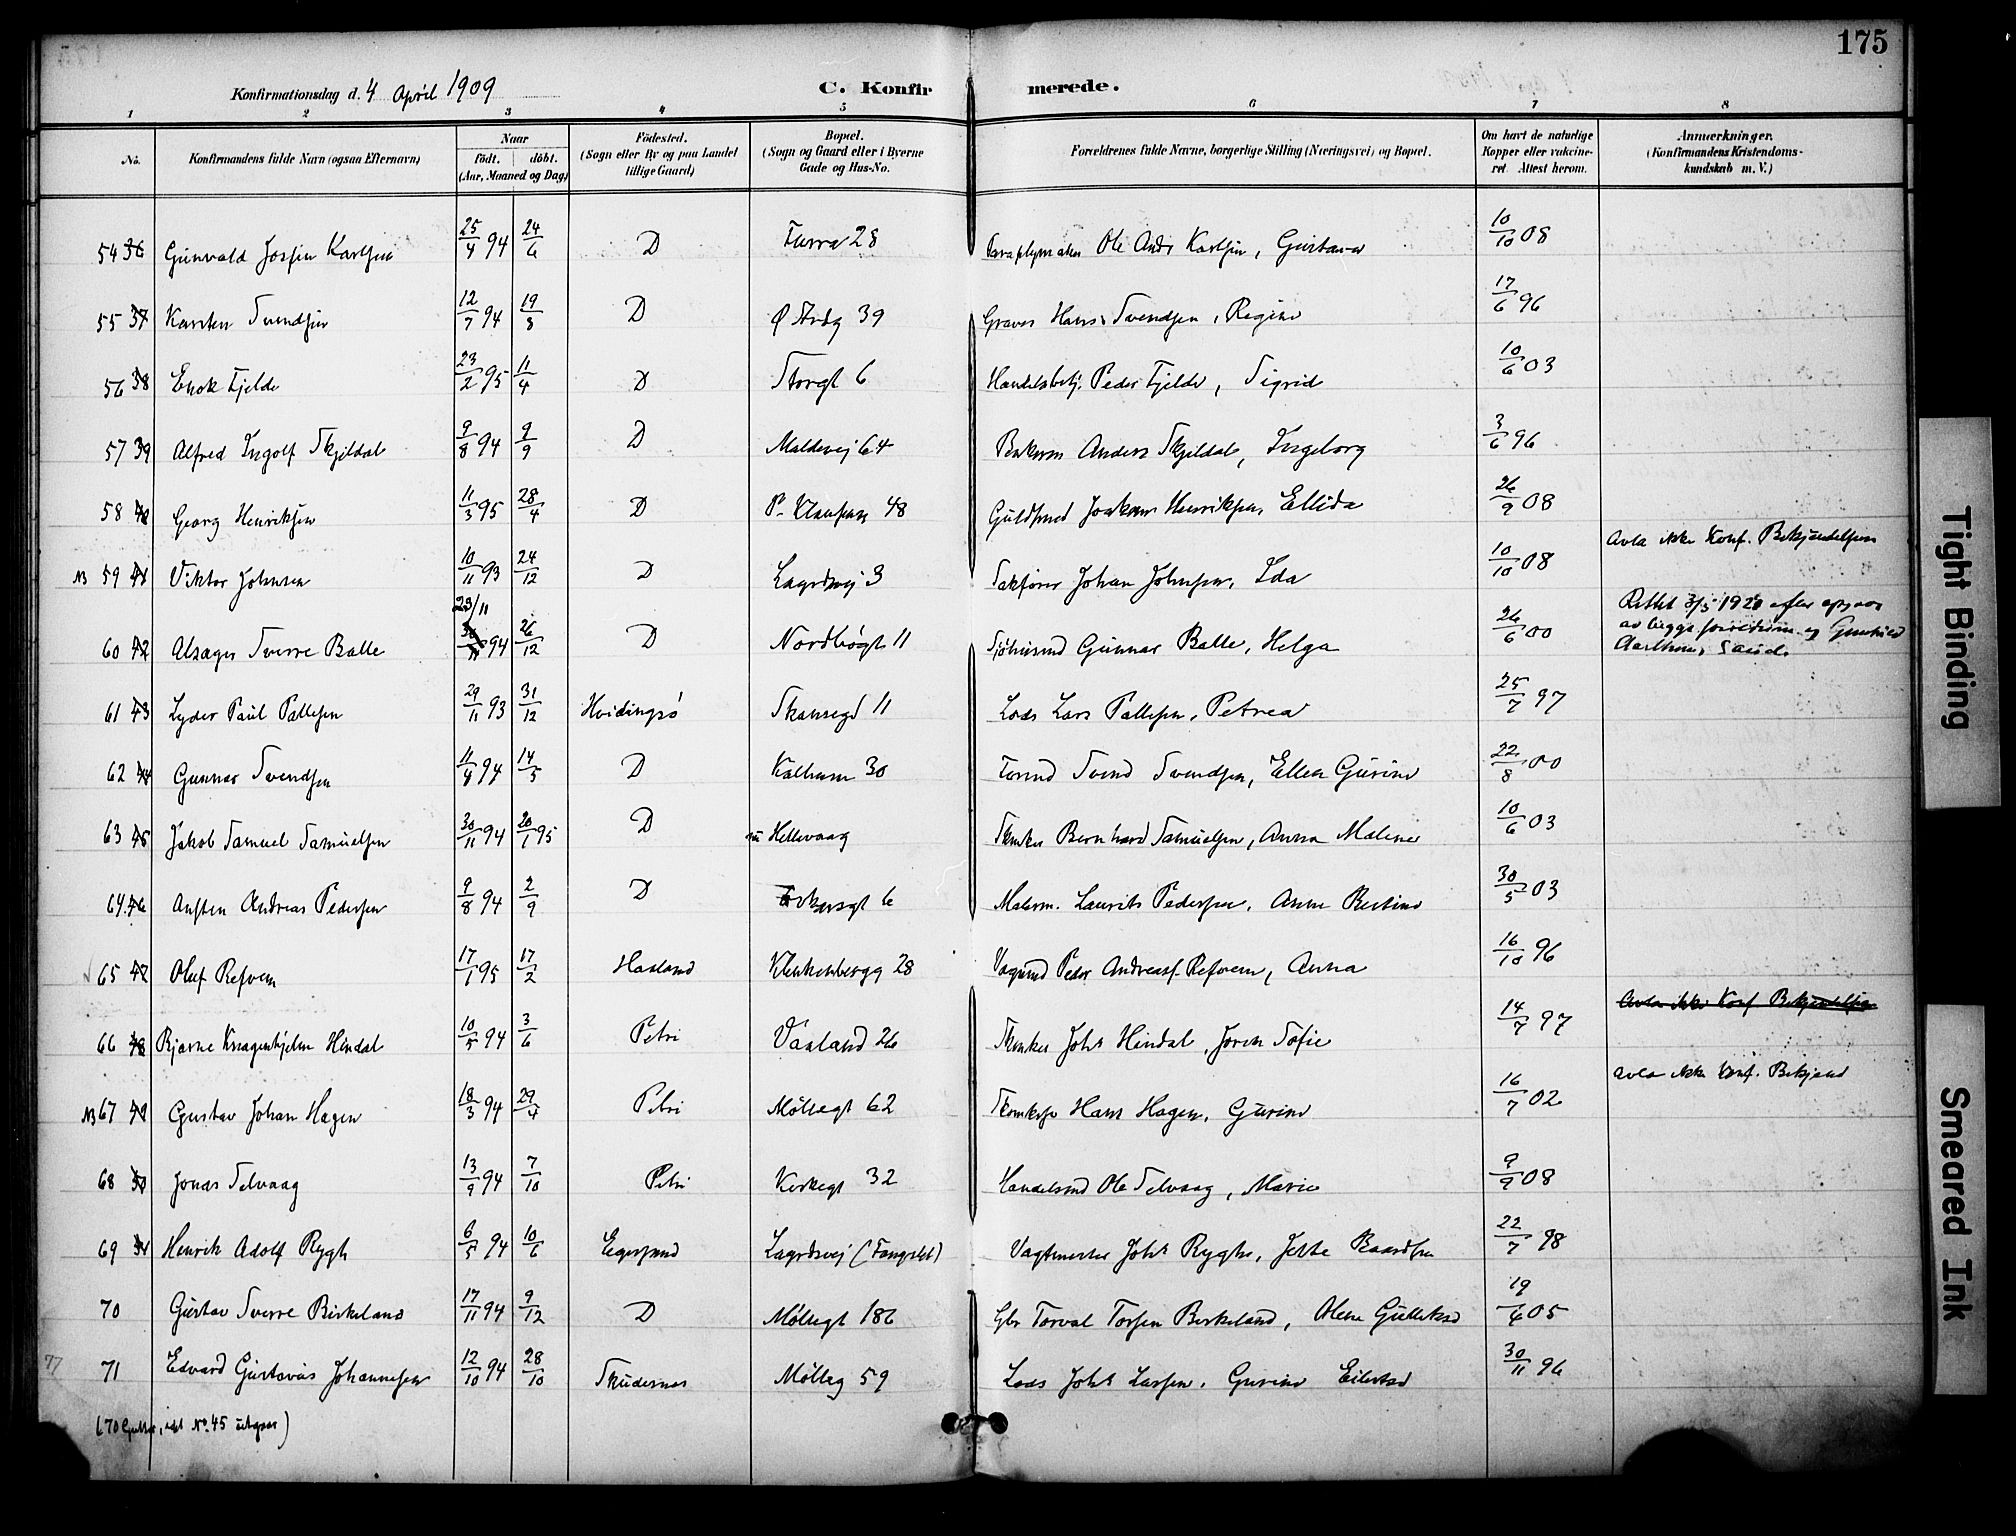 175
Konfirmationsdag d. 4 April 1909 C. Konfirmerede.
1 2 3 4 5 6 7 8
No. Konfirmandens fulde Navn (ogsaa Efternavn) Naar født. døbt. (Aar, Maaned og Dag) Fødested. (Sogn eller By og paa Landet tillige Gaard) Bopæl. (Sogn og Gaard eller i Byerne Gade og Hus-No. Forældrenes fulde Navne, borgerlige Stilling (Næringsvei) og Bopæl. Om havt de naturlige Kopper eller vakcineret. Attest herom. Anmærkninger. (Konfirmandens Kristendomskundskab m. V.)
54 36 Gunvald Karlsen 25/4 94 24/6 D 28 Ole Andr Karlsen, Gustava 10/10 08
55 37 Karsten Svendsen 12/7 94 19/8 D Ø Strdg 39 Graver Hans Svendsen, Regine 17/6 96
56 38 Enok Fjelde 23/2 95 11/4 D Storgt 6 Handelsbetj. Peder Fjelde, Sigrid 10/6 03
57 39 Alfred Ingolf Skjildal 9/8 94 9/9 D Maldevej 64 Anders Skjeldal, Ingeborg 3/6 96
58 40 Georg Henriksen 11/3 95 28/4 D 48 Guldsmed Joakim Henriksen, Ellida 26/9 08
NB 59 41 Viktor Johnsen 10/11 93 24/12 D Lagrdsvej 3 Johan Johnsen, Ida 10/10 08 Avla ikke Konf. Bekjendelsen
60 42 Sverre Balle 23/11 94 26/12 D Nordbøgt 11 Gunnar Balle, Helga 26/6 00 Rettet 3/5 1921 efter opgave av begge forældrene og
61 43 Lyder Paul Pallesen 29/11 93 31/12 Hvidingsø Skansegd 11 Lods Lars Pallesen, Petrea 25/7 97
62 44 Gunnar Svendsen 11/4 94 14/5 D Kalham 30 Svend Svendsen, Ellen Gurine 22/8 00
63 45 Jakob Samuel Samuelsen 30/11 94 20/1 95 D Hellevaag Bernhard Samuelsen, Anna Malene 10/6 03
64 46 Austen Andreas Pedersen 9/8 94 2/9 D 6 Malerm. Laurits Pedersen, Anne Bertine 30/5 03
65 47 Oluf Refvem 17/1 95 17/2 Haaland Klinkenbergg 28 Peder Andreas Refvem, Anna 16/10 96
66 48 Bjarne Kragenhjelm Hindal 10/5 94 3/6 Petri Vaaland 26 Johs Hindal, Joren Sofie 14/7 97 Avla ikke Konf Bekjendelsen
NB 67 49 Gustav Johan Hagen 18/3 94 29/4 Petri Møllegt 62 Hans Hagen, Gurine 16/7 02 avla ikke Konf. Bekjend
68 50 Jonas Selvaag 13/9 94 7/10 Petri Kirkegt 32 Handelsmd Ole Selvaag, Marie 9/9 08
69 51 Henrik Adolf Rygh 6/5 94 10/6 Egersund Lagrdsvej (Fængslet) Vagtmester Johs Rygh, Jette Baardsen 22/7 98
70 Gustav Sverre Birkeland 17/11 94 9/12 D Møllegt 186 Gbr Torval Torsen Birkeland, Olene Gulleksd 19/6 05
77 71 Edvard Gustavus Johannesen 12/10 94 28/10 SkudesnesØlleg 59 Lods Johs Larsen, Gurine Eilertsd 30/11 96
(70 Gutter, idet No. 45 utgaar)
Tight Binding
Smeared Ink